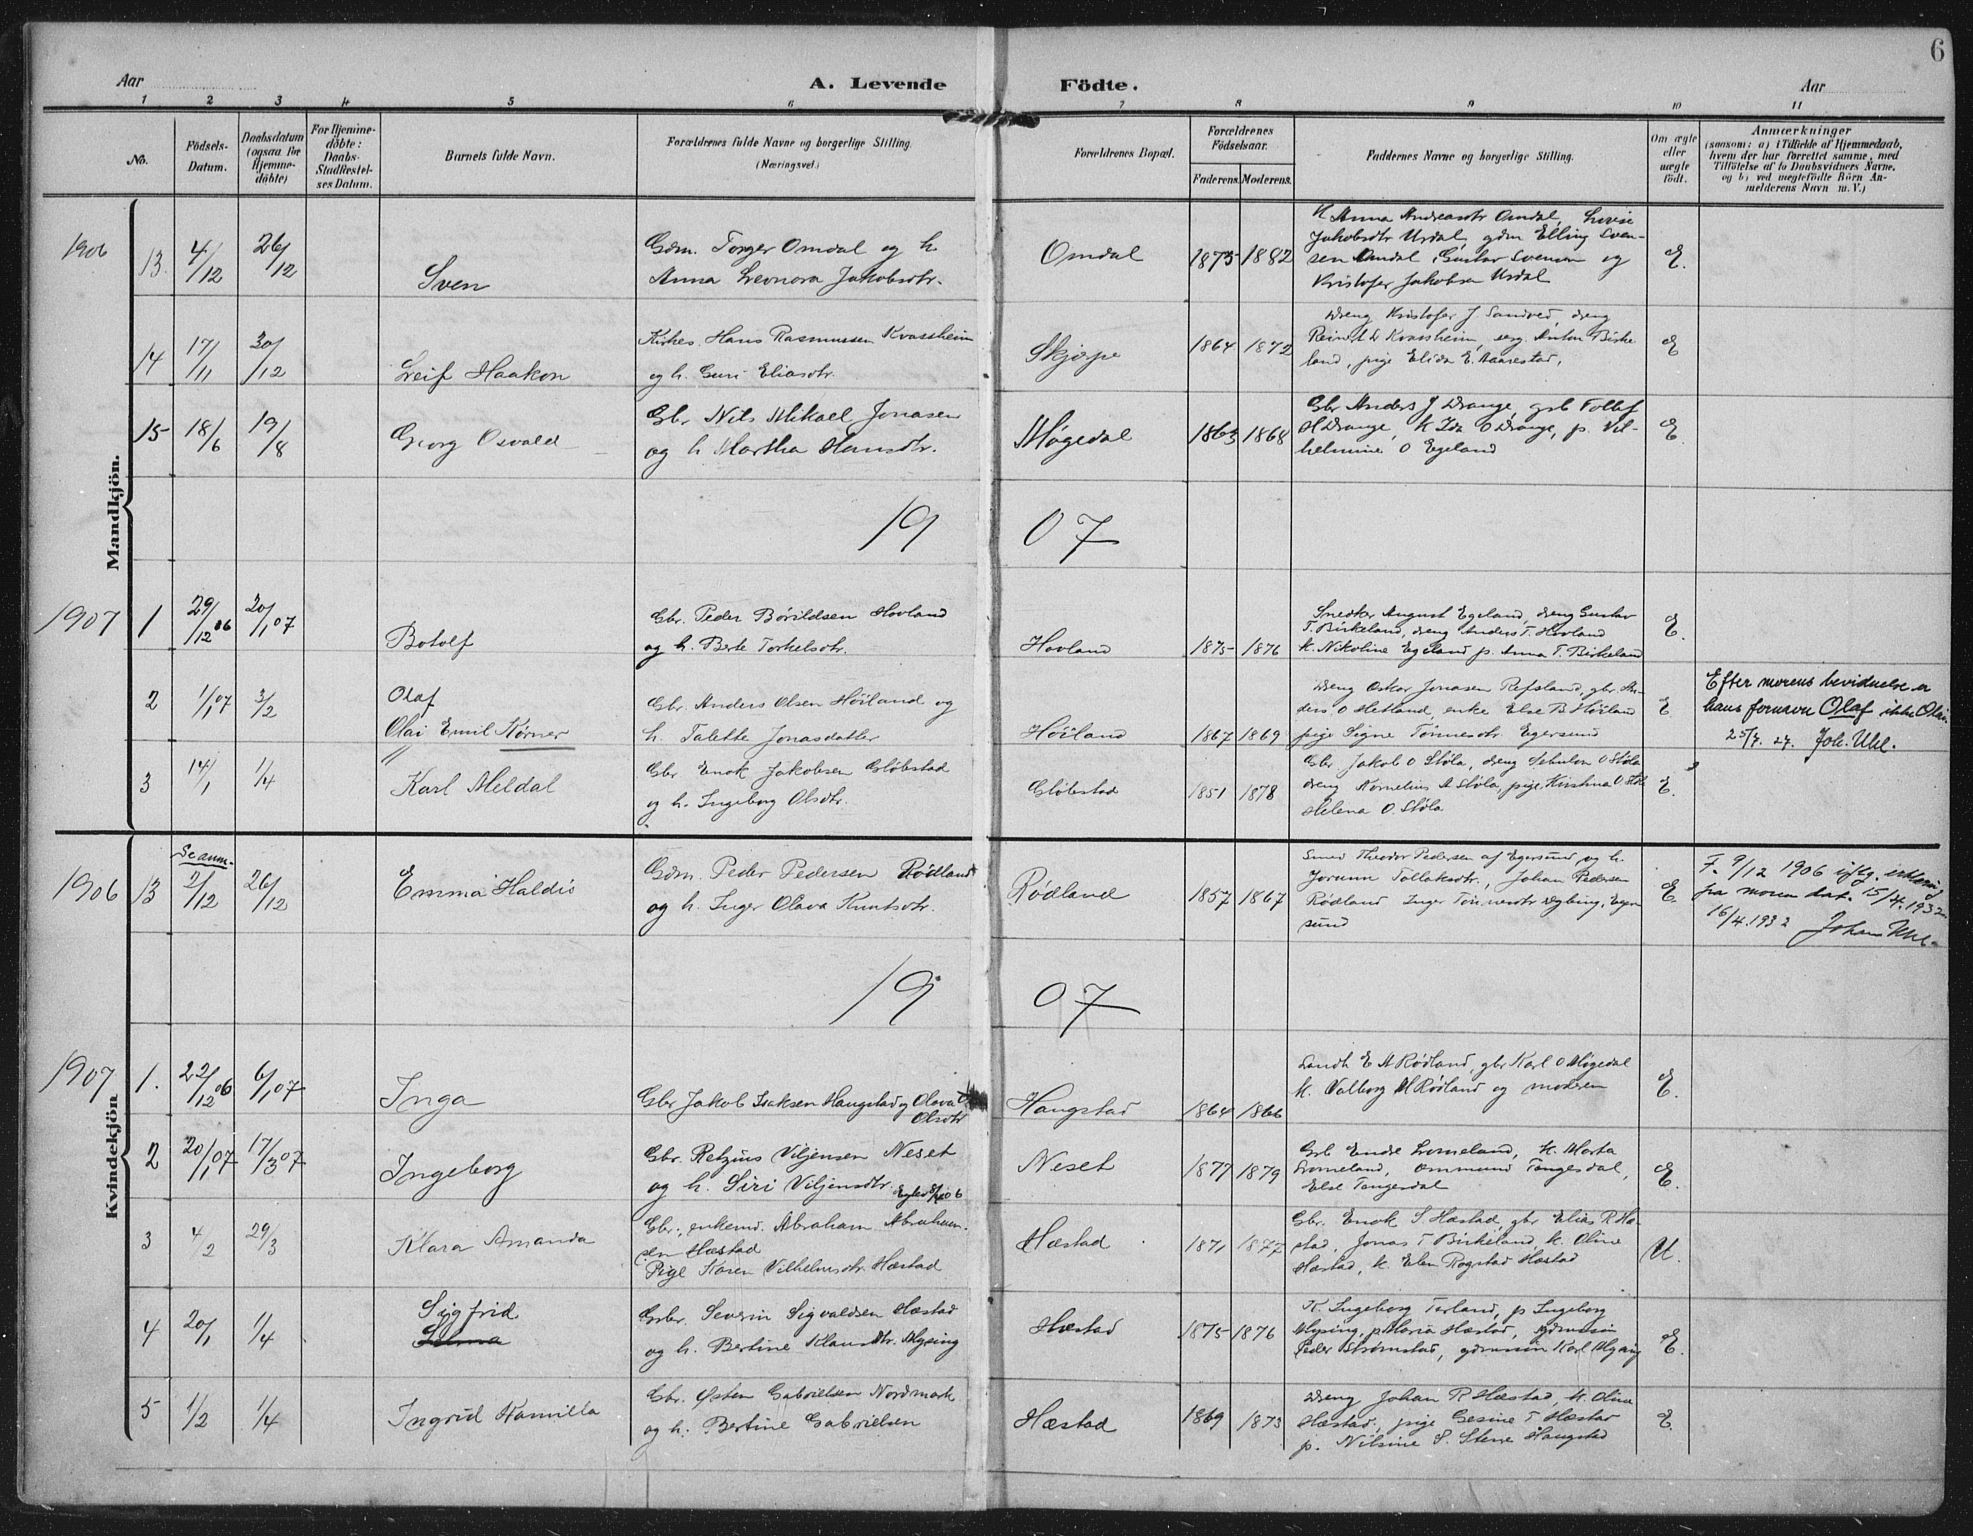 6
Aar
A. Levende
Födte.
Aar
1 2 3 4 5 6 7 8 9 10 11
No.
Födsels-
Datum.
Daabsdatum
(ogsaa for
Hjemme-
döbte)
For Hjemme-
döbte:
Daabs-
Stadfæstel-
ses Datum.
Barnets fulde Navn.
Forældrenes fulde Navne og borgerlige Stilling.
(Næringsvei.)
Forældrenes Bopæl.
Forældrenes
Födselsaar.
Faderens. Moderens.
Faddernes Navne og borgerlige Stilling.
Om ægte
eller
uægte
födt.
Anmærkninger
(saasom: a) i Tilfælde af Hjemmedaab,
hvem der har forrettet samme, med
Tilföielse af to Daabsvidners Navne,
og b) ved uægtefödte Börn An-
melderens Navn m. V.)
Mandkjön.
1906 13. 4/12 26/12 Sven
Gdm. Torger Omdal og h.
Anna Leonora Jakobsdtr.
Omdal 1873 1882
K Anna Andreasdtr Omdal, Lovise
Jakobsdtr Urdal, gdm Elling Sven-
sen Omdal, Gustav Svensen og
Kristofer Jakobsen Urdal
E.
14 17/11 30/12 Leif Haakon
Kirkes. Hans Rasmussen Kvassheim
og h. Guri Eliasdtr.
Skjæpe 1864 1872
Dreng Kristofer J Sandved, dreng
Reinert L Kvassheim, Anton Birke-
land, pige Elida E. Aarestad,
E
15 18/6 19/8 Georg Osvald
Gbr Nils Mikael Jonasen
og h Martha Hansdtr.
Møgedal 1863 1868
Gbr Anders J Drange, grb Tollef
H Drange, K Ida O Drange, p. Vil-
helmine O Egeland
E.
19 07
1907 1 29/12 06 20/1 07 Botolf
Gbr. Peder Børildsen Hovland
og h. Berte Torkelsdtr.
Hovland 1875 1876
Snedker August Egeland, dreng Gustav
T. Birkeland, dreng Anders T. Hovland
k. Nikoline Egeland p. Anna T. Birkeland
E.
2 1/1 07 3/2
Olaf
Olai Emil Kørner
Gbr. Anders Olsen Höiland og
h. Talette Jonasdatter
Höiland 1867 1869
Dreng Oskar Jonasen Refsland, gbr An-
ders. O Hetland, enke Else B. Höiland
pige Signe Tönnesdtr. Egersund
E
Efter morens bevidnelse er
hans fornavn Olaf ikke Olai.
25/7. 27. Joh. Uhl.
3 14/1 1/4 Karl Meldal
Gbr Enok Jakobsen Gløbstad
og h. Ingeborg Olsdtr.
Gløbstad 1851 1878
Gbr Jakob O Støla, dreng Sebulon O Støla
dreng Kornelius A Støla, pige Kristina O Støla
Helena O. Støla
E.
Kvindekjön
1906 13 2/12 26/12 Emma Haldis
Se anm.
Gdm. Peder Pedersen Rødland
og h. Inger Olava Knutsdtr.
Rødland 1857 1867
Smed Theodor Pedersen af Egersund og h.
Jorunn Tollaksdtr., Johan Pedersen
Rødland Inger Tönnesdtr Egers-
sund
E
F. 9/12 1906 iflg. erklæring
fra moren dat. 15/4.1932.
16/4.1932 Johan Uhl.
19 07
1907 1. 22/12 06 6/1 07 Inga
Gbr Jakob Isaksen Haugstad og Olava
Olsdtr
Haugstad 1864 1866
Landh E A Rødland, gbr Karl O Møgedal
k. Valborg M Rødland og moderen
E.
2 20/1 07 17/3 07 Ingeborg
Gbr. Retzius Viljensen Neset
og h. Siri Viljensdtr.
Neset 1877 1879
Grb Endre Lomeland, K. Marta
Lomeland, Ommund Tengesdal,
Else Tengesdal
E.
3 4/2 29/3 Klara Amanda
Gbr., enkemd. Abraham Abraham-
sen Hæstad
Pige Karen Vilhelmsdtr. Hæstad
Hæstad 1871 1877
Gbr. Enok S. Hæstad, gbr Elias R Hæ-
stad, Jonas T Birkeland, k. Oline
Hæstad, k. Elen Rogstad Hæstad
U.
4 20/1 1/4
Sigfrid
Selma
Grbr. Severin Sigvaldsen Hæstad
og h. Bertine Klausdtr. Mysing
Hæstad 1875 1876
K. Ingeborg Terland, p Ingeborg
Mysing, p Maria Hæstad, gdmssøn
Peder Strømstad, gdmssøn Karl Mysing
E.
5 1/2 1/4 Ingrid Kamilla
Gbr. Østen Gabrielsen Nordmark
og h. Bertine Gabrielsen
Hæstad 1869 1873
Dreng Johan R Hæstad, k. Olina
Hæstad, pige Gesine T Hæstad
p. Nilsine S. Stene Haugstad
E.